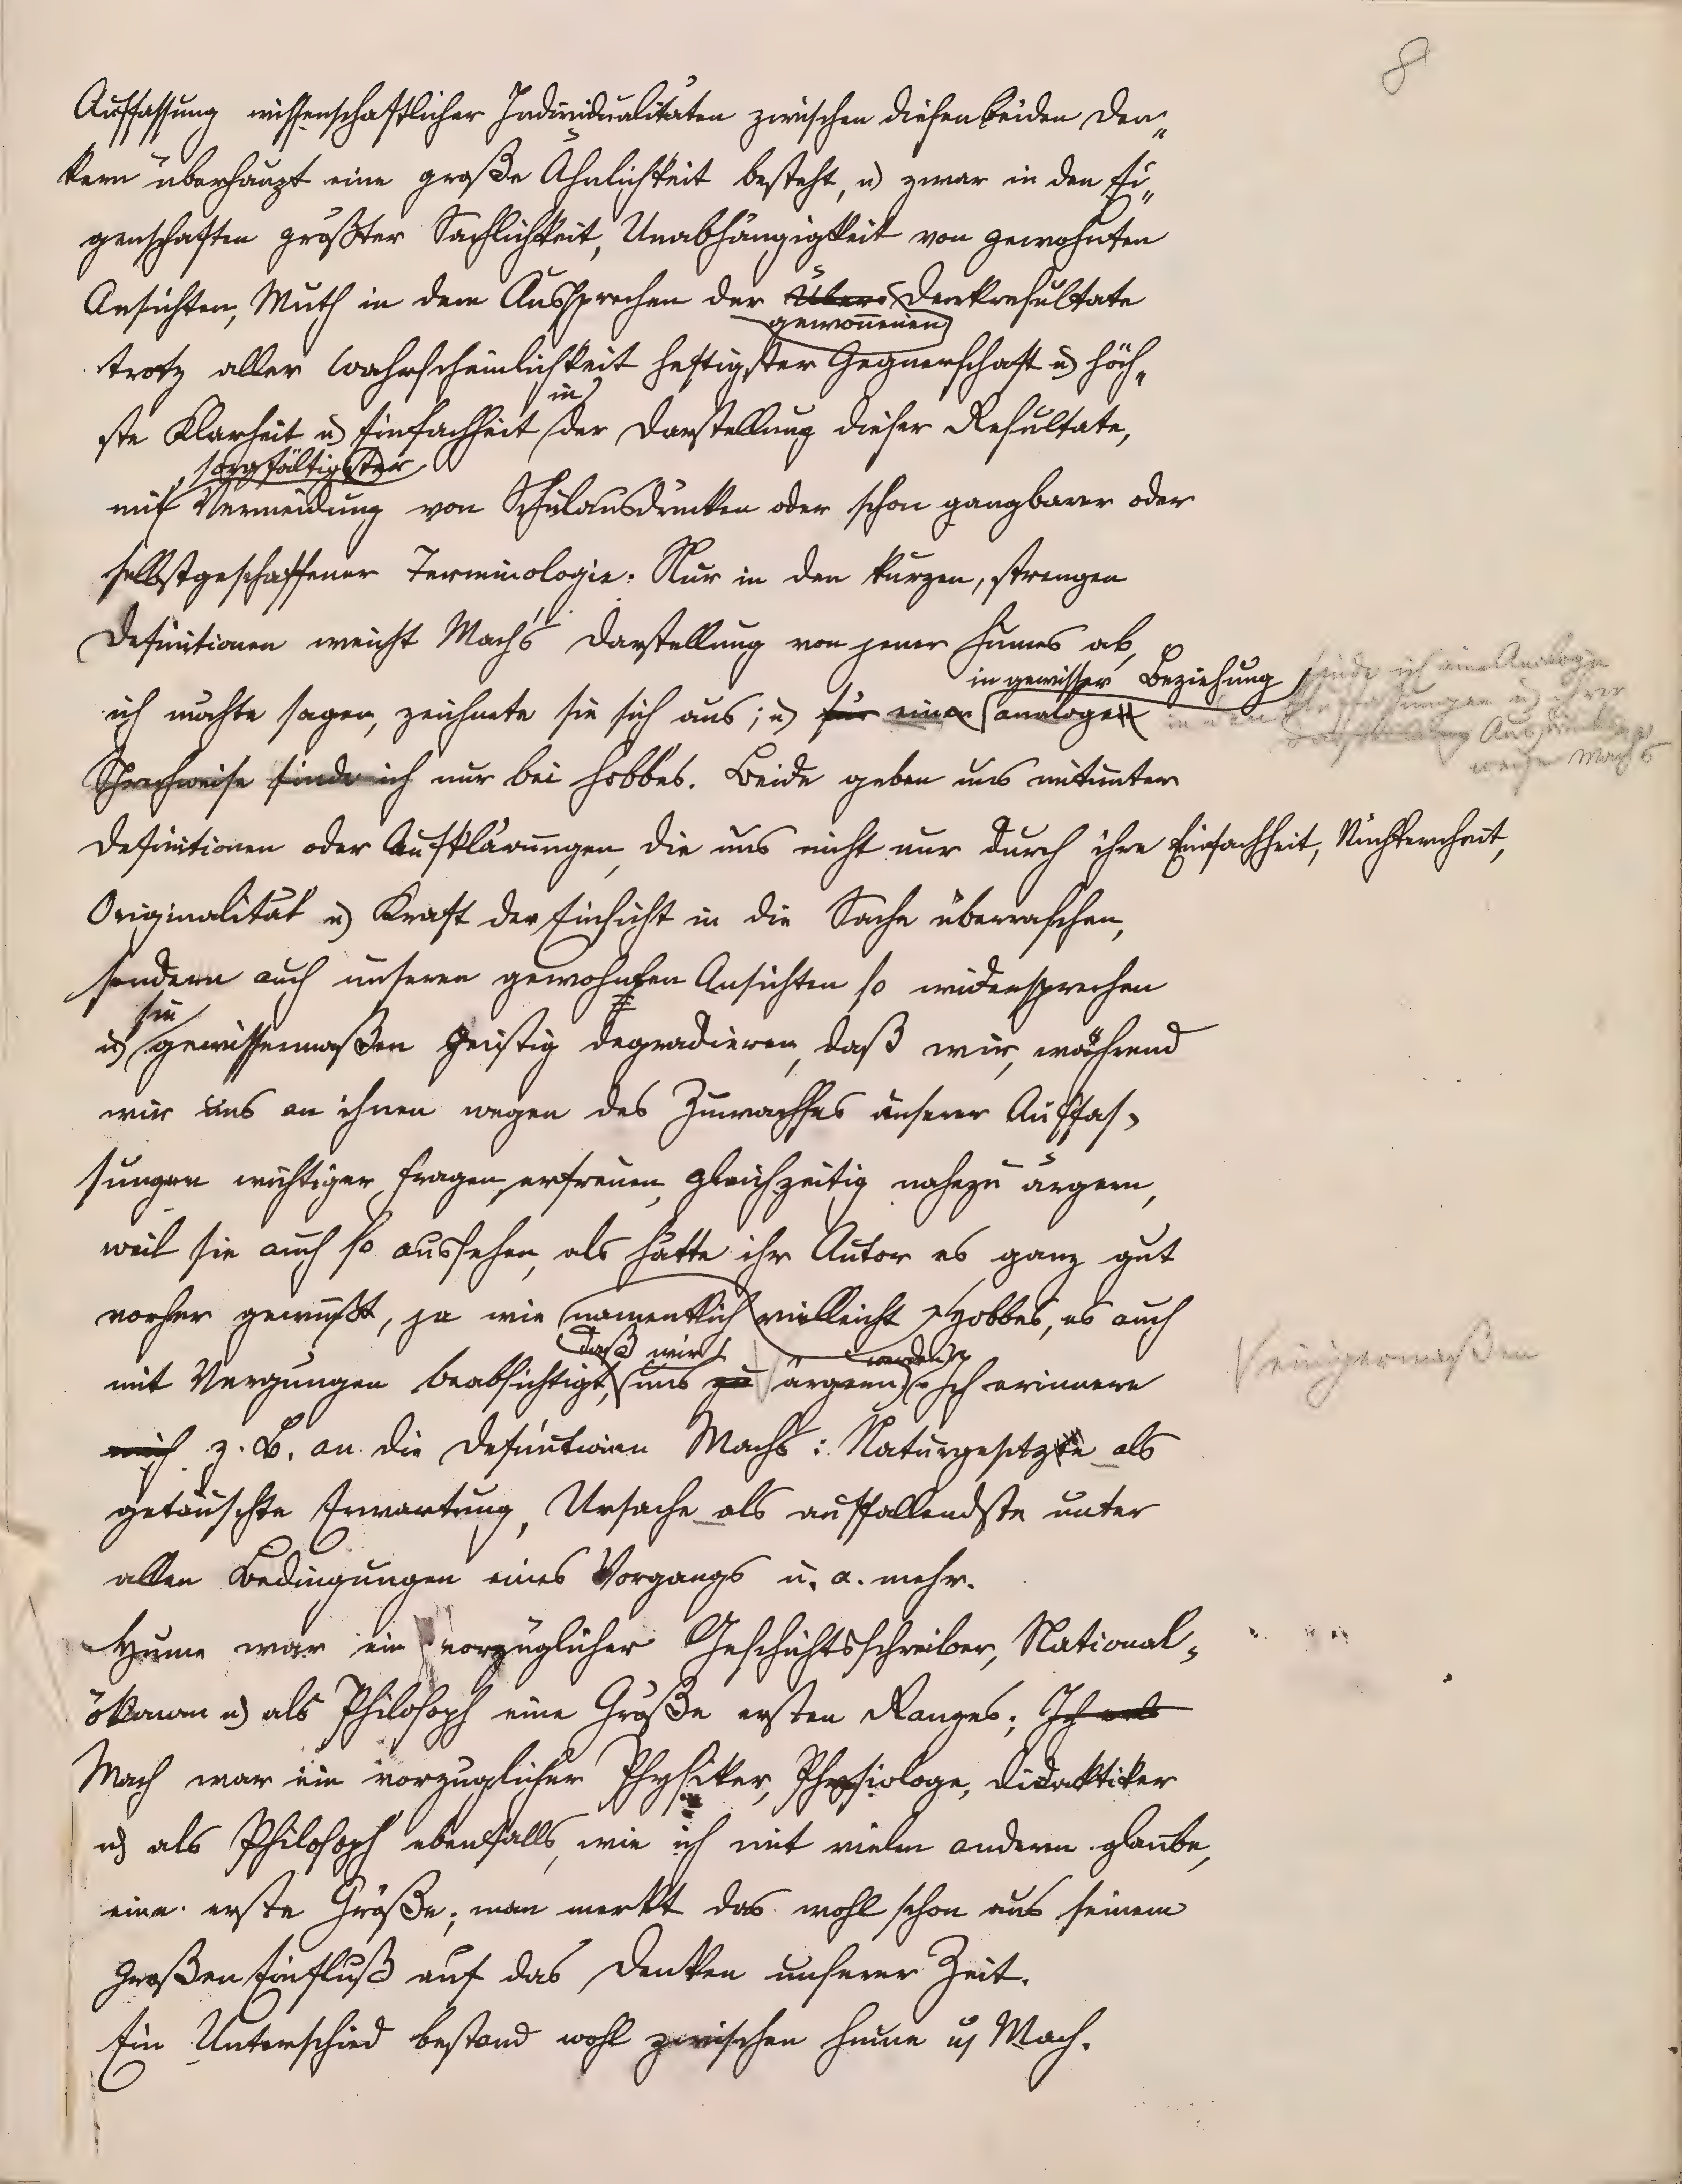 8
Auffassung wissenschaftlicher Individualitäten zwischen diesen beiden Den„
kern überhaupt eine große Ähnlichkeit besteht, u zwar in den Ei„
genschaften größter Sachlichkeit, Unabhängigkeit von gewohnten
Ansichten, Muth in dem Aussprechen der Denkresultate
gewonnenen
trotz aller Wahrscheinlichkeit heftigster Gegnerschaft u höch„
in
ste Klarheit u Einfachheit der Darstellung dieser Resultate,
sorgfältigster
mit Vermeidung von Schulausdrücken oder schon gangbarer oder
selbstgeschaffener Terminologie. Nur in den kurzen, strengen
Definitionen weicht Mach's Darstellung von jener Humes ab,
in gewisser Beziehung
finde ich eine Analogie
ich möchte sagen, zeichnete sie sich aus; u für eine analoge
in den Auffassungen u ihrer
Ausdrucks
weise Machs
Sprechweise finde ich nur bei Hobbes. Beide geben uns mitunter
Definitionen oder Aufklärungen, die uns nicht nur durch ihre Einfachheit, Nüchternheit,
Originalität u Kraft der Einsicht in die Sache überraschen,
sondern auch unseren gewohnten Ansichten so widersprechen
sie
u gewissermaßen geistig degradieren, daß wir, während
wir uns an ihnen wegen des Zuwachses unserer Auffas-
sungen wichtiger Fragen erfreuen, gleichzeitig nahezu ärgern,
weil sie auch so aussehen, als hätte ihr Autor es ganz gut
vorher gewußt, ja wie namentlich vielleicht Hobbes, es auch
daß wir werden
einigermaßen
mit Vergnügen beabsichtigt, uns zu ärgern. Ich erinnere
mich z. B. an die Definitionen Machs: Naturgesetze als
getäuschte Erwartung, Ursache als auffallendste unter
allen Bedingungen eines Vorgangs u. a. mehr.
Hume war ein vorzüglicher Geschichtsschreiber, National-
ökonom u als Philosoph eine Größe ersten Ranges; Ich
Mach war ein vorzüglicher Physiker, Physiologe, Didaktiker
u als Philosoph ebenfalls, wie ich mit vielen anderen glaube,
eine erste Größe; man merkt das wohl schon aus seinem
großen Einfluß auf das Denken unserer Zeit.
Ein Unterschied bestand wohl zwischen Hume u Mach.